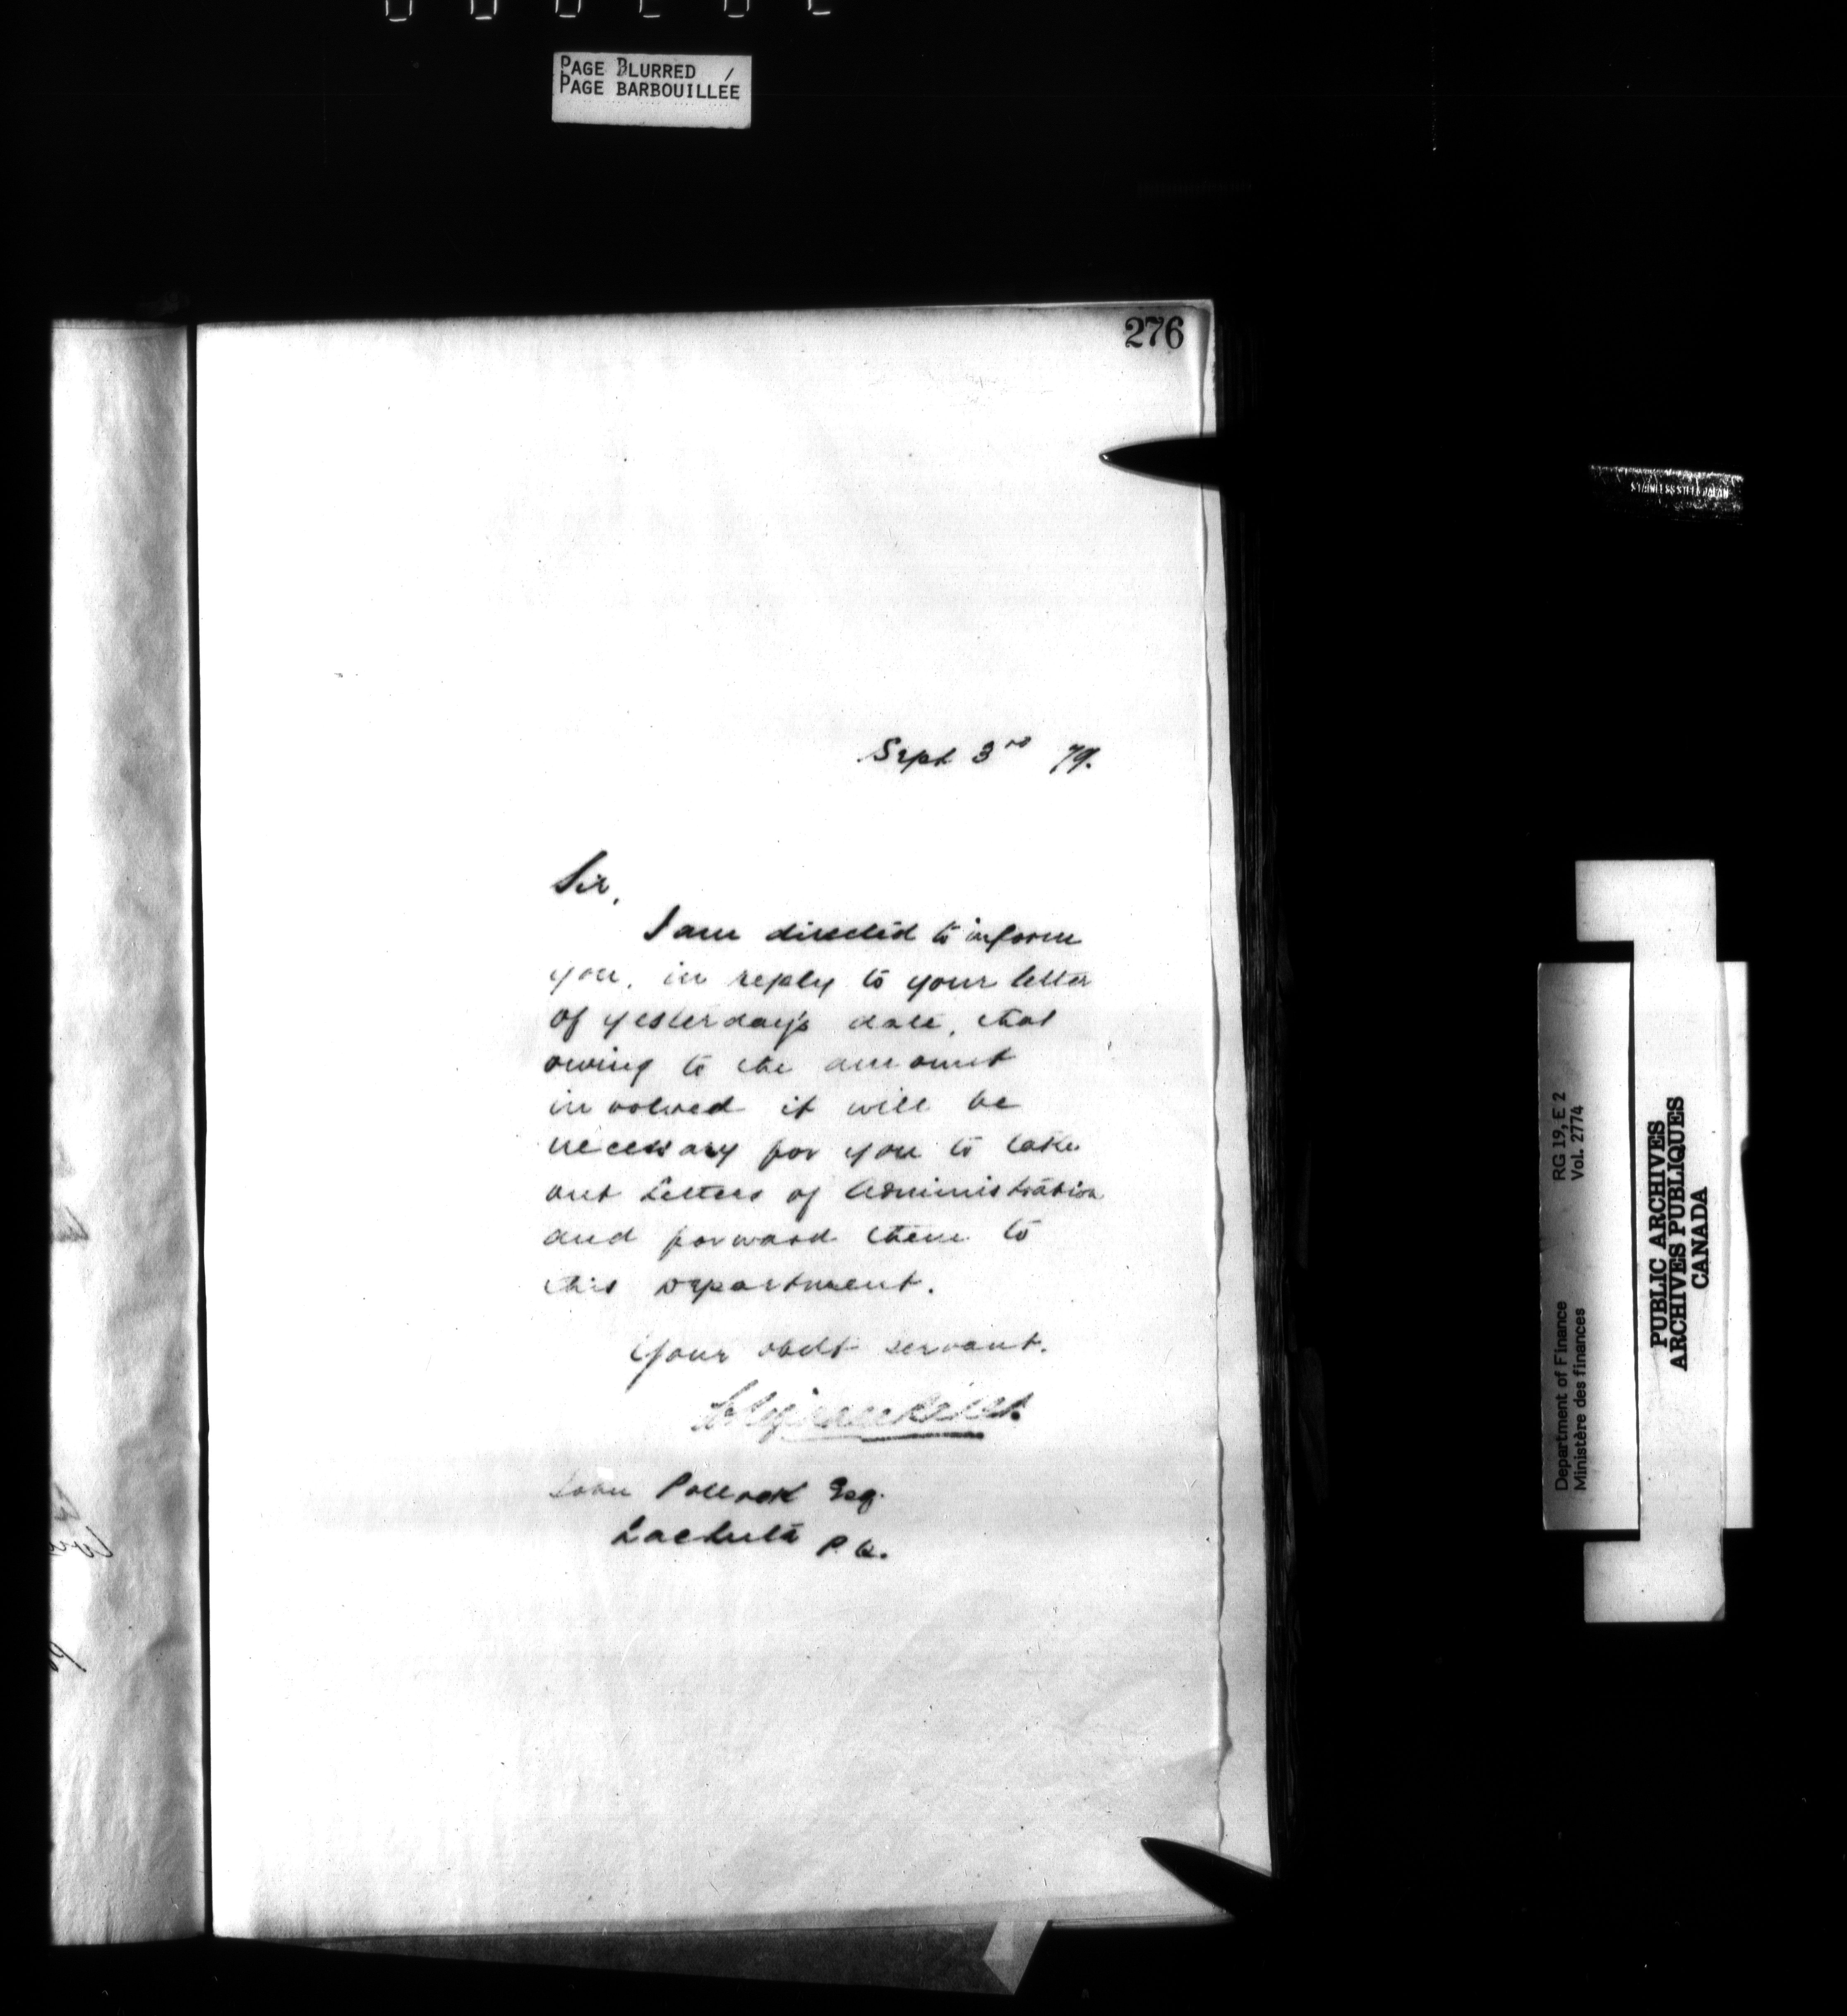 PAGE BLURRED
PAGE BARBOUILLÉE
276
Sept 3rd 79.
Sir,
I am directed to inform
you, in reply to your letter
of yesterday's date, that
owing to the amount
involved it will be
necessary for you to take
out Letters of Administration
and forward them to
this Department.
Your obdt servant.
John Pollock Esq.
Lachute P.Q.
STAINLESS STEEL JAPAN
Department of Finance RG 19, E 2
Ministère des finances Vol. 2774
PUBLIC ARCHIVES
ARCHIVES PUBLIQUES
CANADA